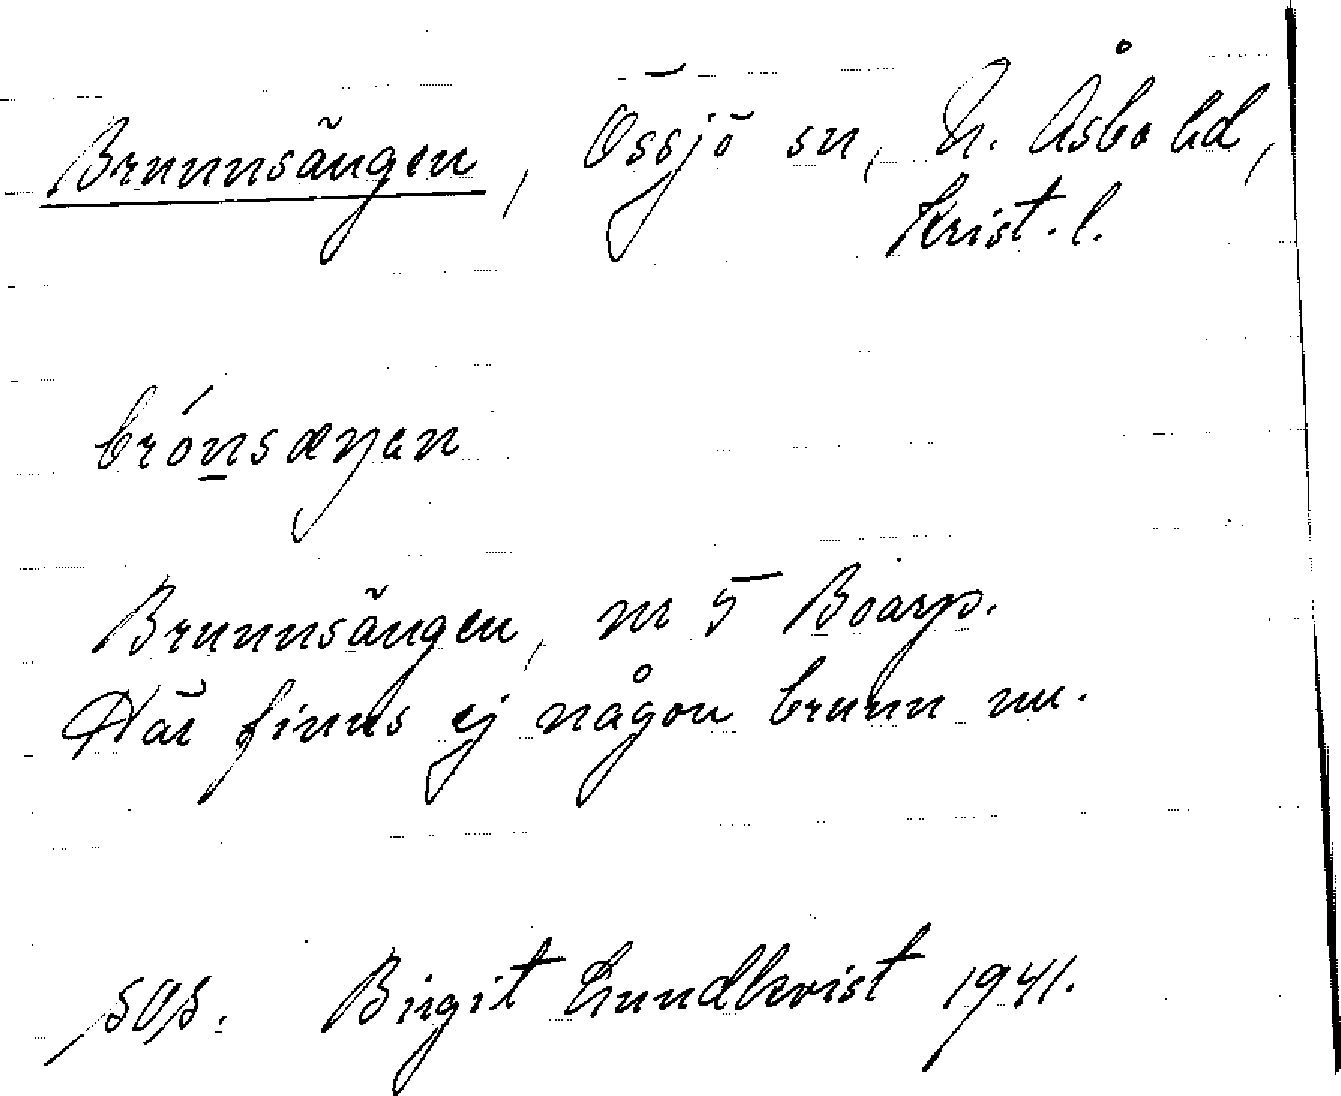 Brunnsängen, Össjö sn, N. Åsbo hd,
Krist. l.
brónsæŋan
Brunnsängen, nr 5 Boarp.
Där finns ej någon brunn nu.
Birgit Lundkvist 1941.